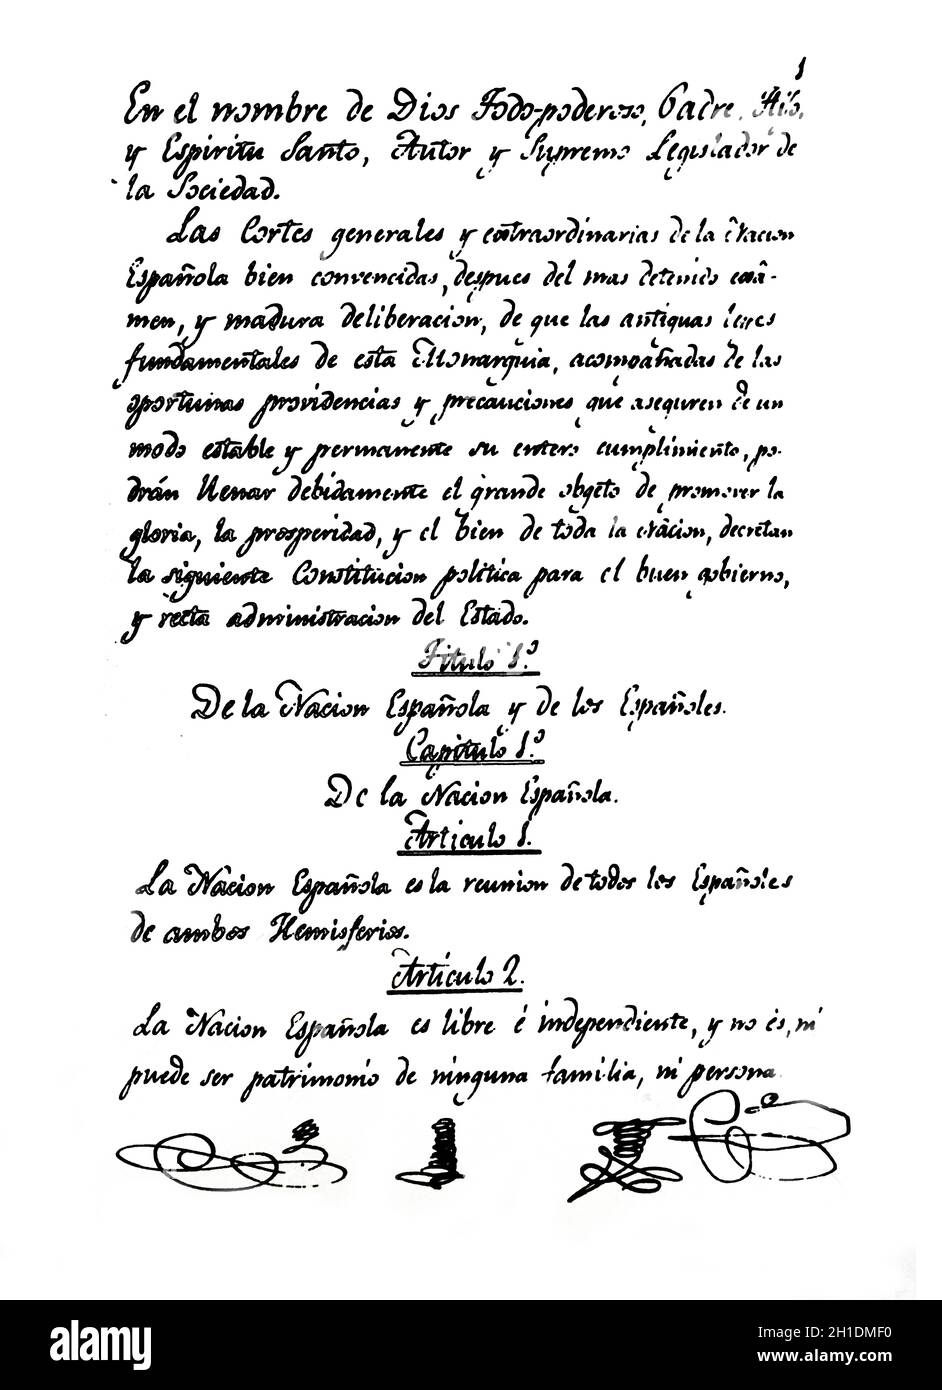 1
En el nombre de Dios Todo-poderoso, Padre, Hijo,
y Espiritu Santo, Autor y Supremo Legislador de
la Sociedad.
Las Cortes generales y extraordinarias de la Nacion
Española bien convencidas, despues del mas detenido exâ-
men, y madura deliberacion, de que las antiguas leyes
fundamentales de esta Monarquia, acompañadas de las
oportunas providencias y precauciones que aseguren de un
modo estable y permanente su entero cumplimiento, po-
drán llenar debidamente el grande objeto de promover la
gloria, la prosperidad, y el bien de toda la Nacion, decretan
la siguiente Constitucion politica para el buen gobierno,
y recta administracion del Estado.
Titulo 1.º
De la Nacion Española y de los Españoles.
Capitulo 1.º
De la Nacion Española.
Articulo 1.
La Nacion Española es la reunion de todos los Españoles
de ambos Hemisferios.
Articulo 2.
La Nacion Española es libre é independiente, y no és, ni
puede ser patrimonio de ninguna familia, ni persona.
a
alamy
Image ID: 2H1DMF0
www.alamy.com